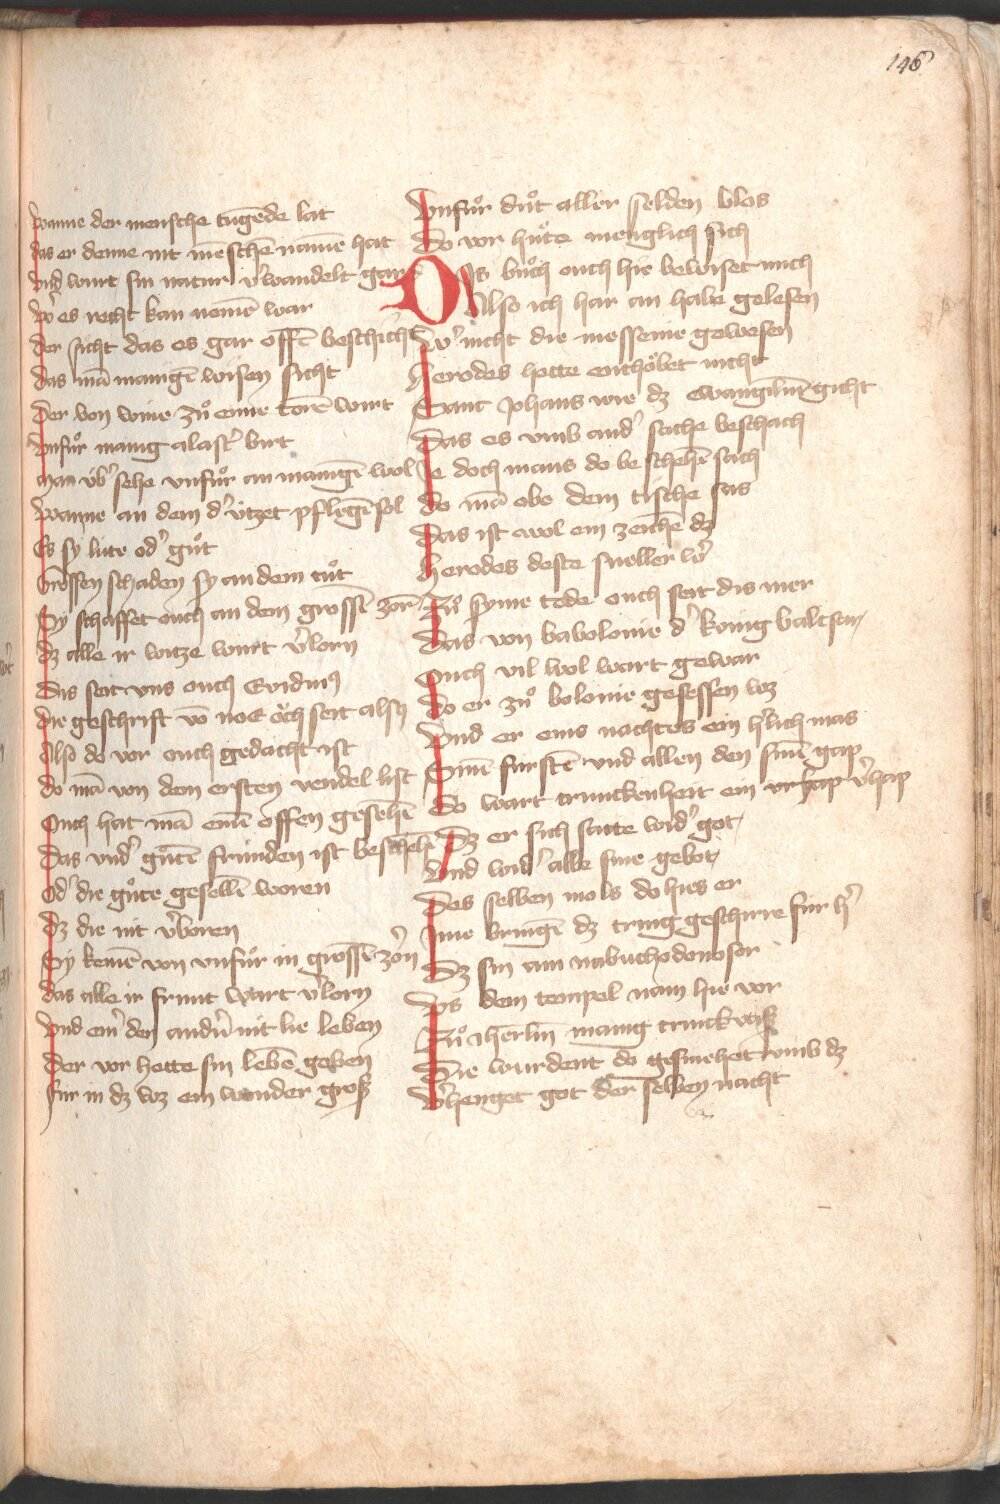 146
Wanne der mensche tugēde lat
das er denne nit mēschē namē hat
Vnd wurt sin natur v͛wandelt gar
W͛ es recht kan nemē war
der sicht das es gar offē beschicht
das mā manigē wisen sicht
Der von wine zuͦ eime torē wirt
Vnfuͦr manig alast͛ birt
Man úb͛ sehe vnfuͦr an manigē wol
Wanne an dem d͛ útzet pflegē sol
Es sy lúte od͛ guͦt
Grossen schaden sy an dem tuͦt
Sy schaffet ouch an dem grossē zorn
dz alle ir witze wurt v͛lorn
Das seit vns ouch Evidius
die geschrift vō noe och seit alsus
Also do vor ouch gedacht ist
do mā von dem ersten vendel list
Ouch hat mā eine offen gesehē
Das vnd͛ guͦtē frúnden ist beschehē
od͛ die guͦte gesellē woren
dz die nit v͛boren
Sy kemē von vnfuͦr in grossē zorn
das alle ir frúnt wart v͛lorn
Vnd ein͛ den andn͛ nit lie leben
Der vor hette sin lebē geben
fúr in dz wz ein wunder gros
Vnfuͦr duͦt aller selden blos
Do vor huͤte menglich sich
Dis buͦch ouch hie bewiset mich
Also ich har an habe gelesen
W͛ nicht die messenie gewesen
Herodes hette enthoͤbet nicht
Sant Johans wie dz ewangiliū gicht
Das es vmb and͛ sache beschach
Je doch mans do beschehē sach
do mā obe dem tische sas
Das ist wol ein zeichē dz
Herodes deste sneller w͛
Zuͦ syme tode ouch seit dis mer
Das von babolonie d͛ kúnig baltsar
Ouch vil wol wart gewar
do er zuͦ bolonie gesessen wz
Vnd er eins nachtes ein h͛lich mas
Sinē fúrstē vnd allen den sinē gap
Do wart trunckenheit ein vrhap v͛hap
Dz er sich satte wid͛ got
Vnd wid͛ alle sine gebot
Des selben mols do hies er
Ime bringē dz tring geschirre fúr h͛
Dz sin ain nabuchodonosor
Vs dem tempel nam hie vor
Zuͦ iherlm manig trinckvas
Die wurdent do gesmehet vmb dz
V͛henget got der selben nacht